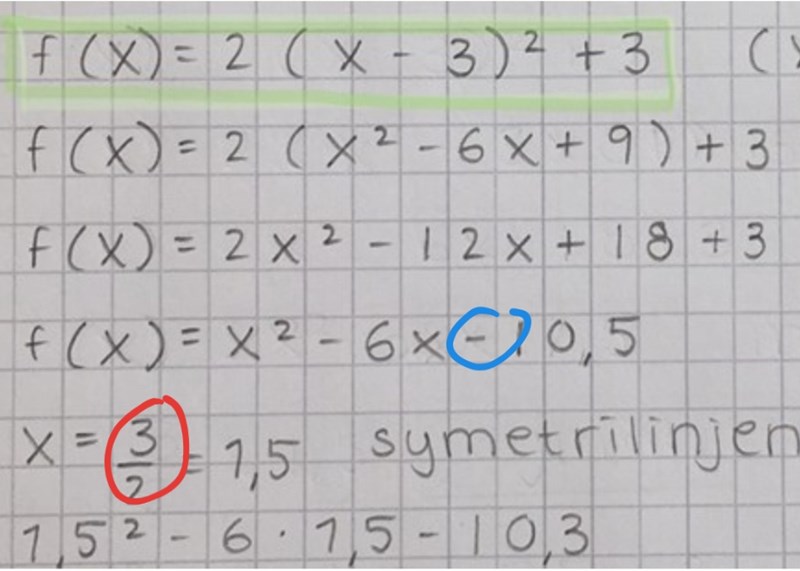 f(x) = 2 (x - 3)² + 3 (
f(x) = 2 (x² - 6x + 9) + 3
f(x) = 2x² - 12x + 18 + 3
f(x) = x² - 6x - 10,5
x = 3/2 = 1,5 symetrilinjen
1,5² - 6 · 1,5 - 10,3